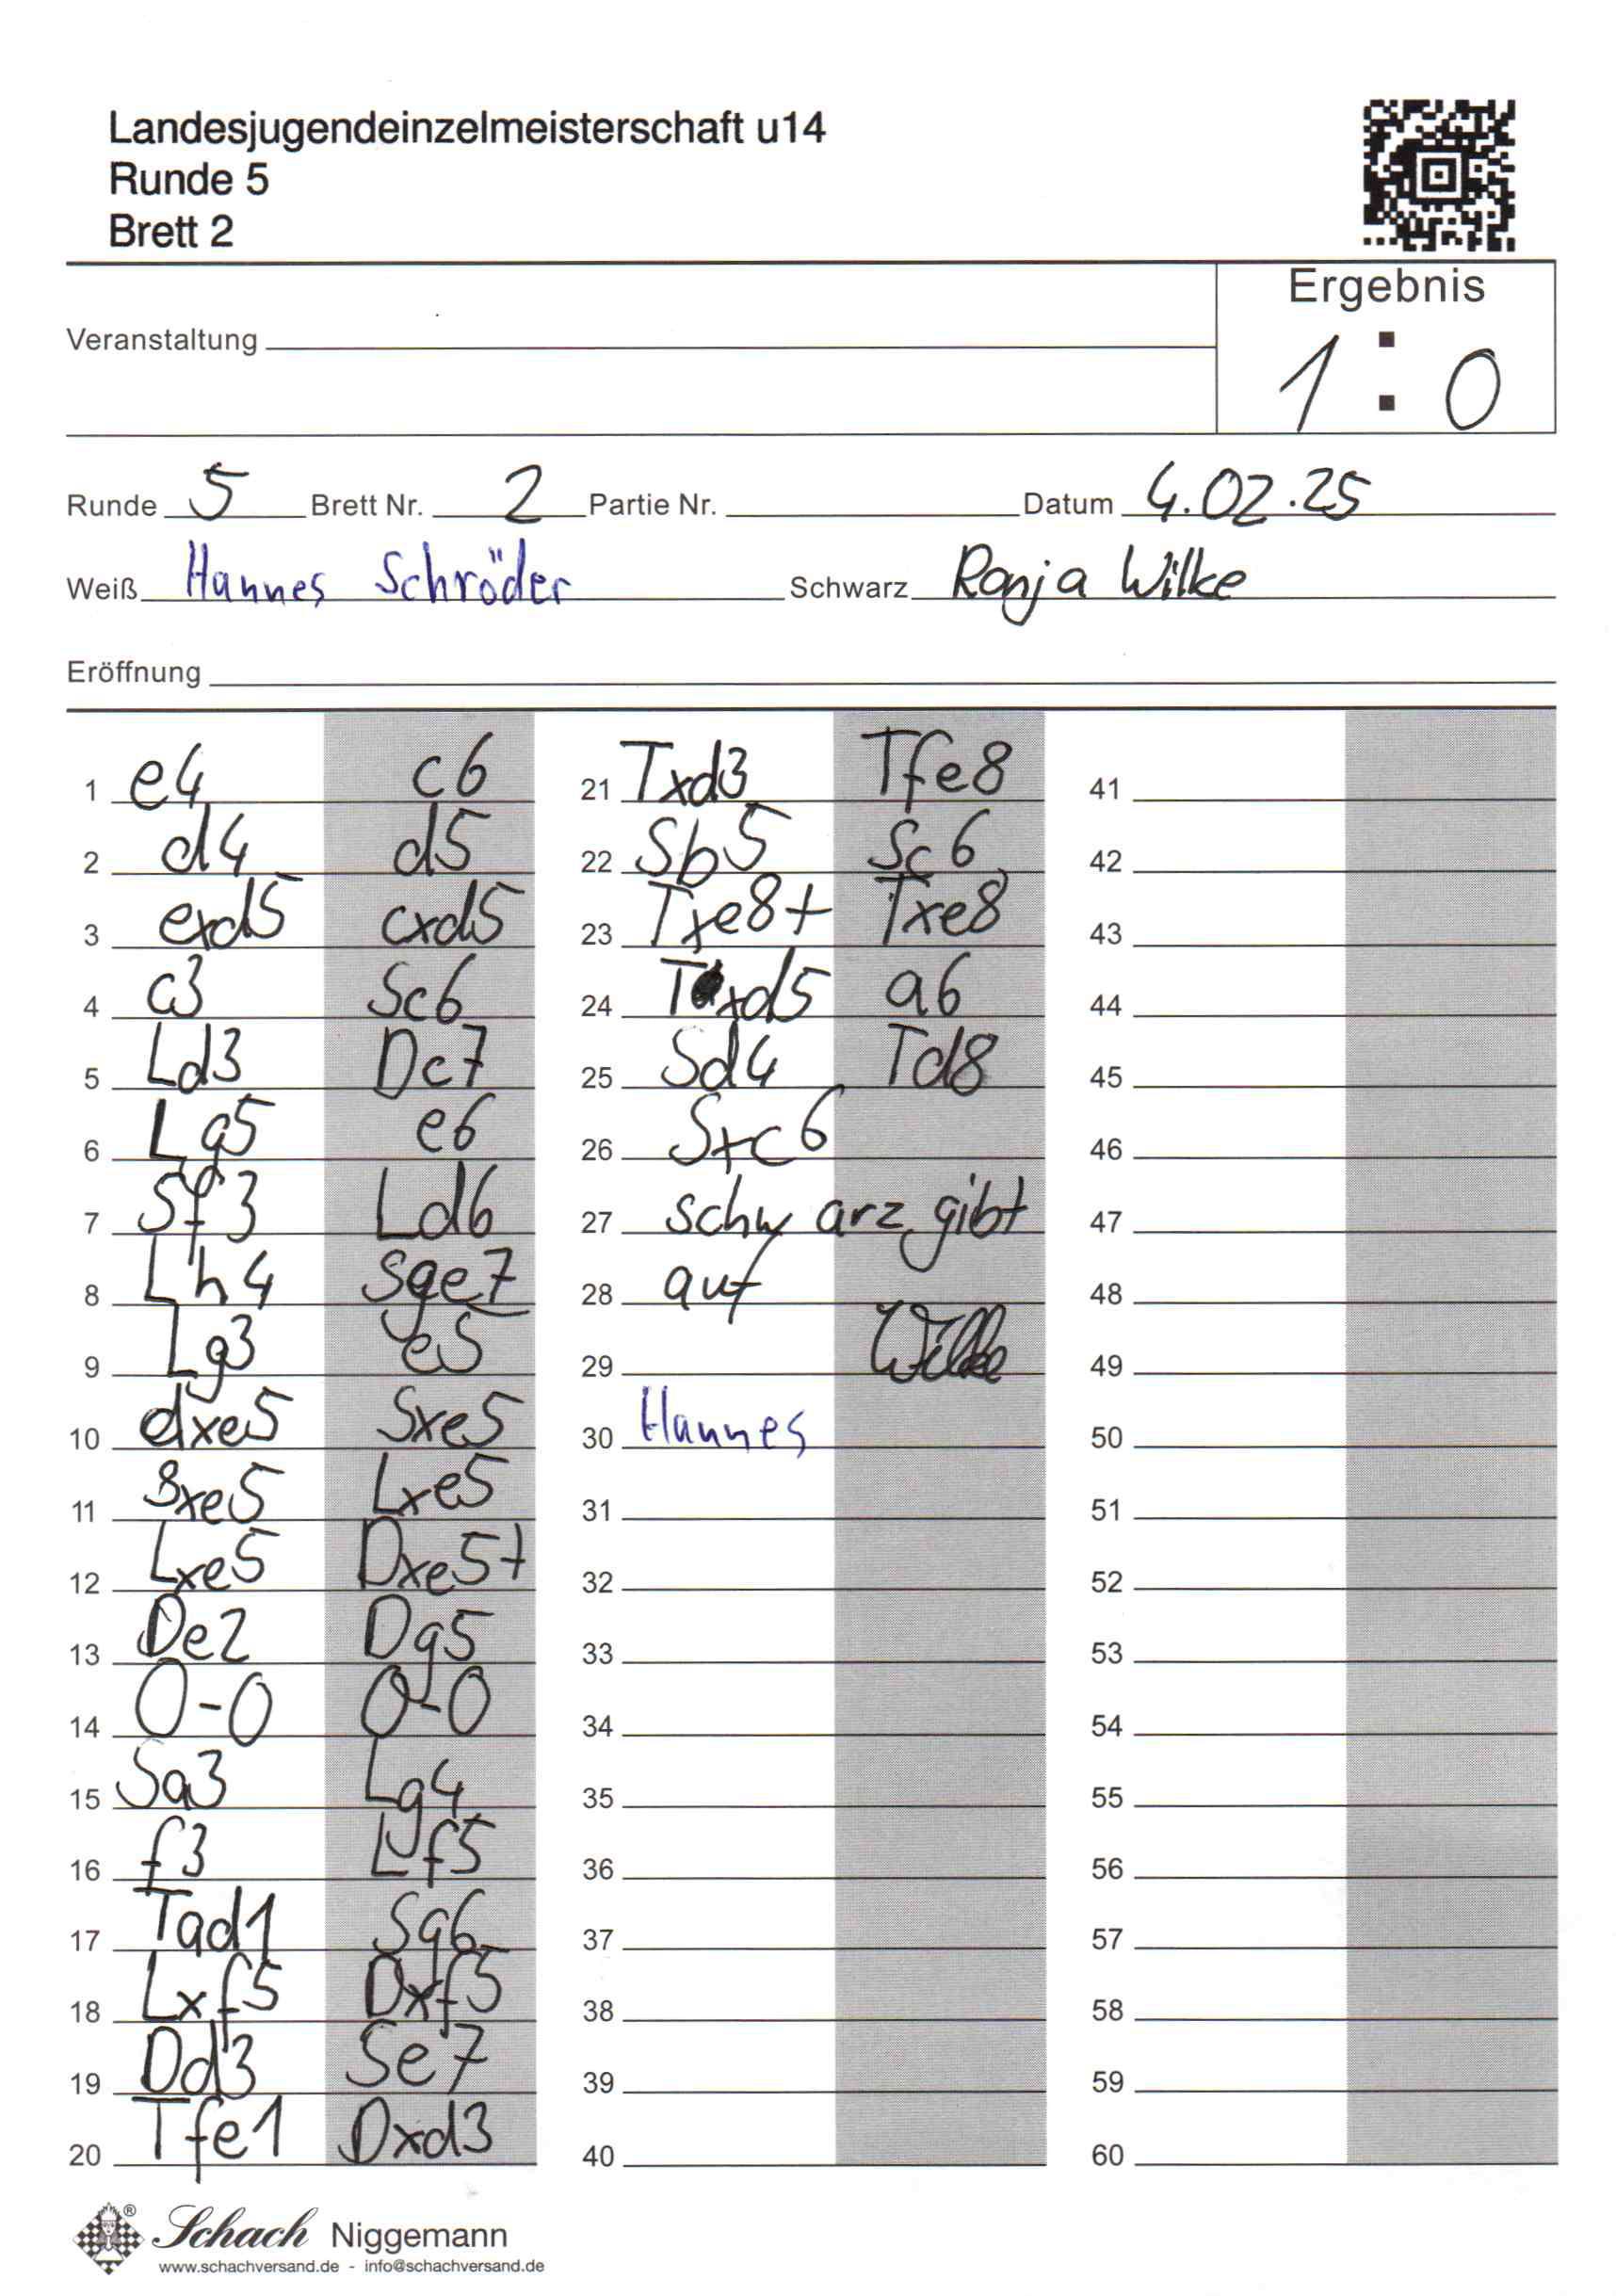 Landesjugendeinzelmeisterschaft u14
Runde 5
Brett 2
Ergebnis
1 : 0
Veranstaltung
Runde 5 Brett Nr. 2 Partie Nr. Datum 4.02.25
Weiß Hannes Schröder Schwarz Ronja Wilke
Eröffnung
1 e4 c6
2 d4 d5
3 exd5 cxd5
4 c3 Sc6
5 Ld3 Dc7
6 Lg5 e6
7 Sf3 Ld6
8 Lh4 Sge7
9 Lg3 e5
10 dxe5 Sxe5
11 Sxe5 Lxe5
12 Lxe5 Dxe5+
13 De2 Dg5
14 0-0 0-0
15 Sa3 Lg4
16 f3 Lf5
17 Tad1 Sg6
18 Lxf5 Dxf5
19 Dd3 Se7
20 Tfe1 Dxd3
21 Txd3 Tfe8
22 Sb5 Sc6
23 Txe8+ Txe8
24 Txd5 a6
25 Sd4 Td8
26 Sxc6
27 schwarz gibt
28 auf
29 Wilke
30 Hannes
31
32
33
34
35
36
37
38
39
40
41
42
43
44
45
46
47
48
49
50
51
52
53
54
55
56
57
58
59
60
Schach Niggemann
www.schachversand.de - info@schachversand.de